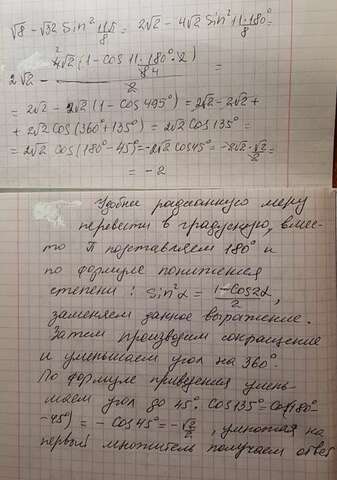 √8 - √32 Sin² 11π/8 = 2√2 - 4√2 Sin² 11·180°/8 =
2√2 - 4√2 (1 - cos 11·180°·2/8 4)/2 =
= 2√2 - 2√2 (1 - cos 495°) = 2√2 - 2√2 +
+ 2√2 cos(360° + 135°) = 2√2 cos 135° =
= 2√2 cos (180° - 45°) = -2√2 cos 45° = -2√2 · √2/2 =
= -2
Удобнее радианную меру
перевести в градусную, вмес-
то π подставляем 180° и
по формуле понижения
степени: Sin²α = 1-cos2α/2,
заменяем данное выражение.
Затем производим сокращение
и уменьшаем угол на 360°.
По формуле приведения умень-
шаем угол до 45°. Cos135° = Cos(180°-
-45°) = - Cos 45° = -√2/2, умножая на
первый множитель получаем ответ